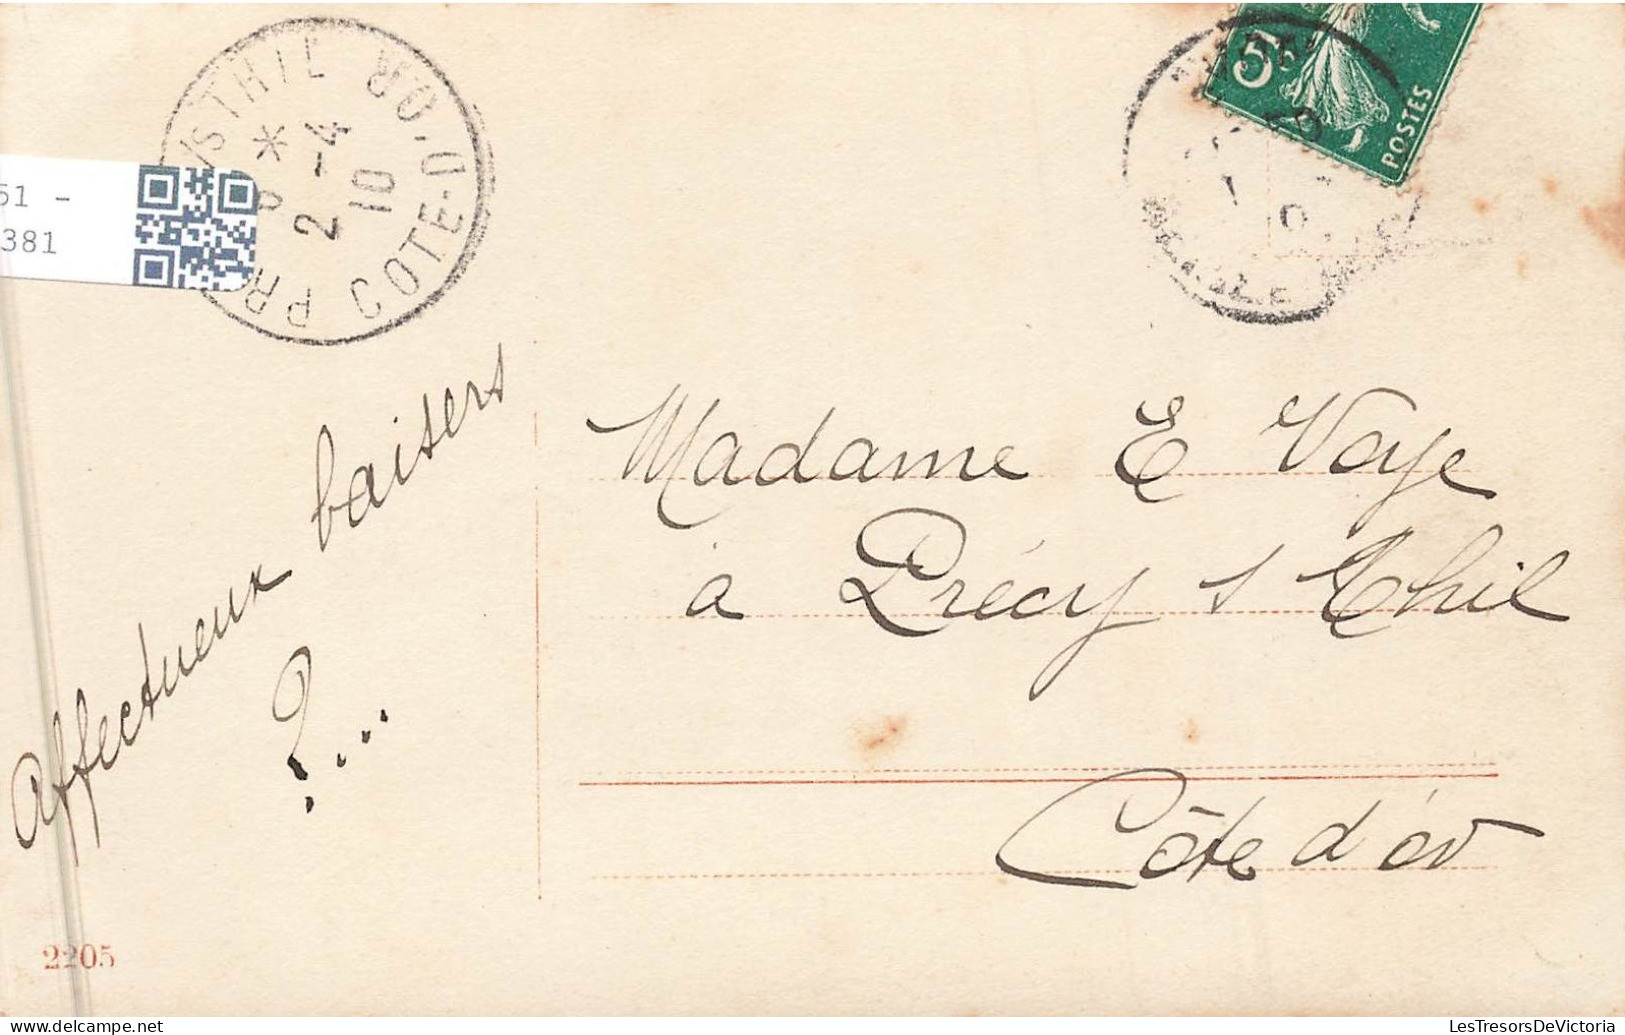 STHIL
CÔTE-D'OR
2-4
10
51 -
381
5c
POSTES
Affectueux baisers
?...
Madame E Voye
à Précy s Thil
Côte d'or
2205
delcampe.net
LesTresorsDeVictoria